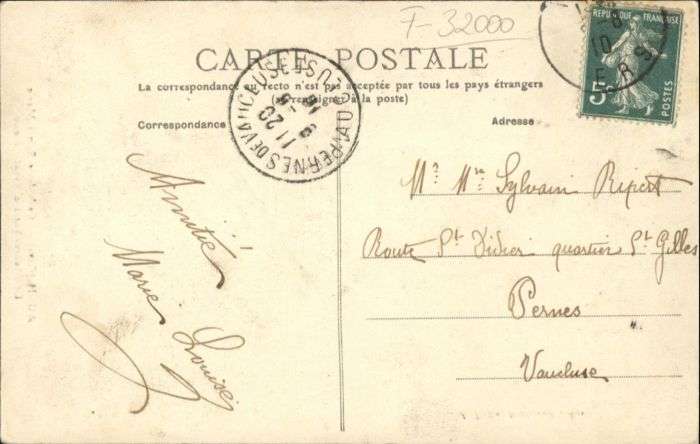 F-32000
CARTE POSTALE
La correspondance au recto n'est pas acceptée par tous les pays étrangers
(se renseigner à la poste)
Correspondance
Adresse
RÉPUBLIQUE FRANÇAISE
5c
POSTES
PERNES DE VAUCLUSE
VAUCLUSE
11 20
Amitié
Marie Louise
Mr Mme Sylvain Ripert
Route St Didier quartier St Gilles
Pernes
Vaucluse